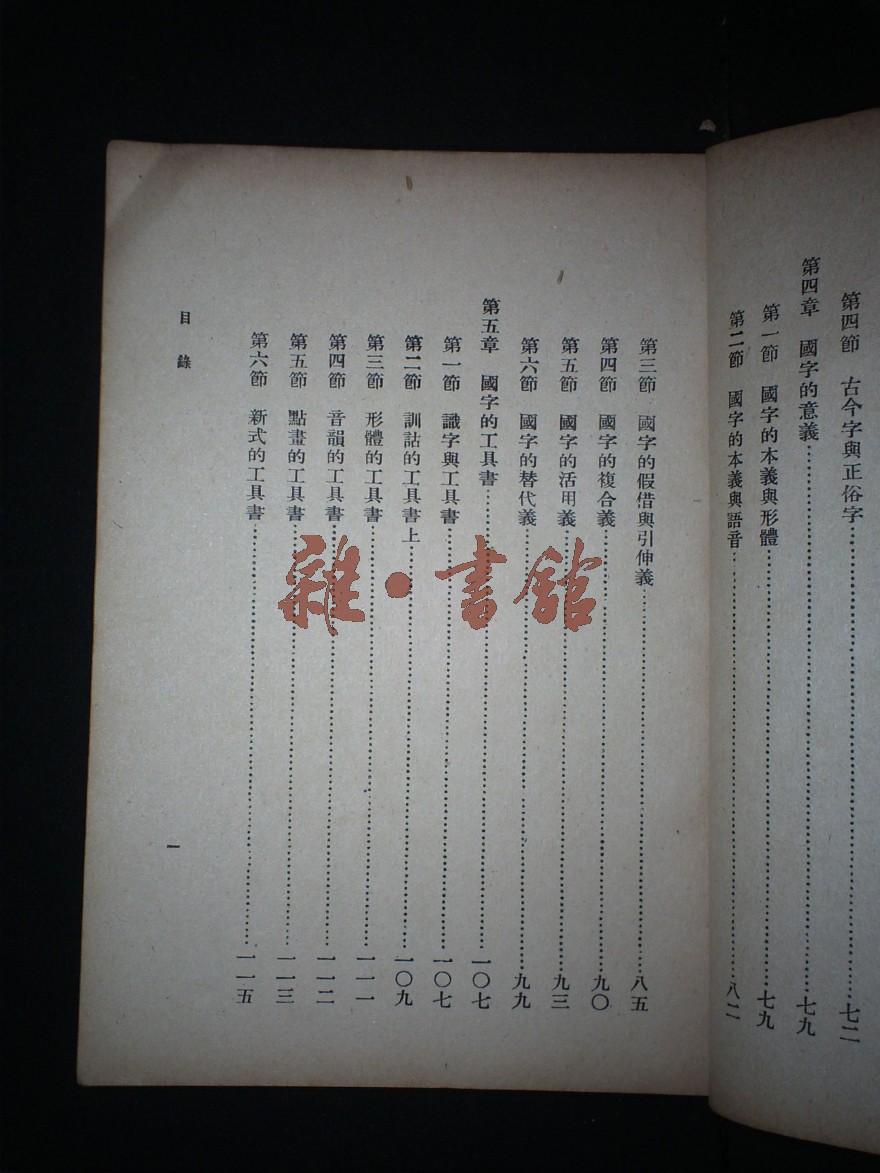 第四節　古今字與正俗字……七二
第四章　國字的意義……七九
第一節　國字的本義與形體……七九
第二節　國字的本義與語音……八二
第三節　國字的假借與引伸義……八五
第四節　國字的複合義……九〇
第五節　國字的活用義……九三
第六節　國字的替代義……九九
第五章　國字的工具書……一〇七
第一節　識字與工具書……一〇七
第二節　訓詁的工具書上……一〇九
第三節　形體的工具書……一一一
第四節　音韻的工具書……一一二
第五節　點畫的工具書……一一三
第六節　新式的工具書……一一五
目錄
一
雜·書館